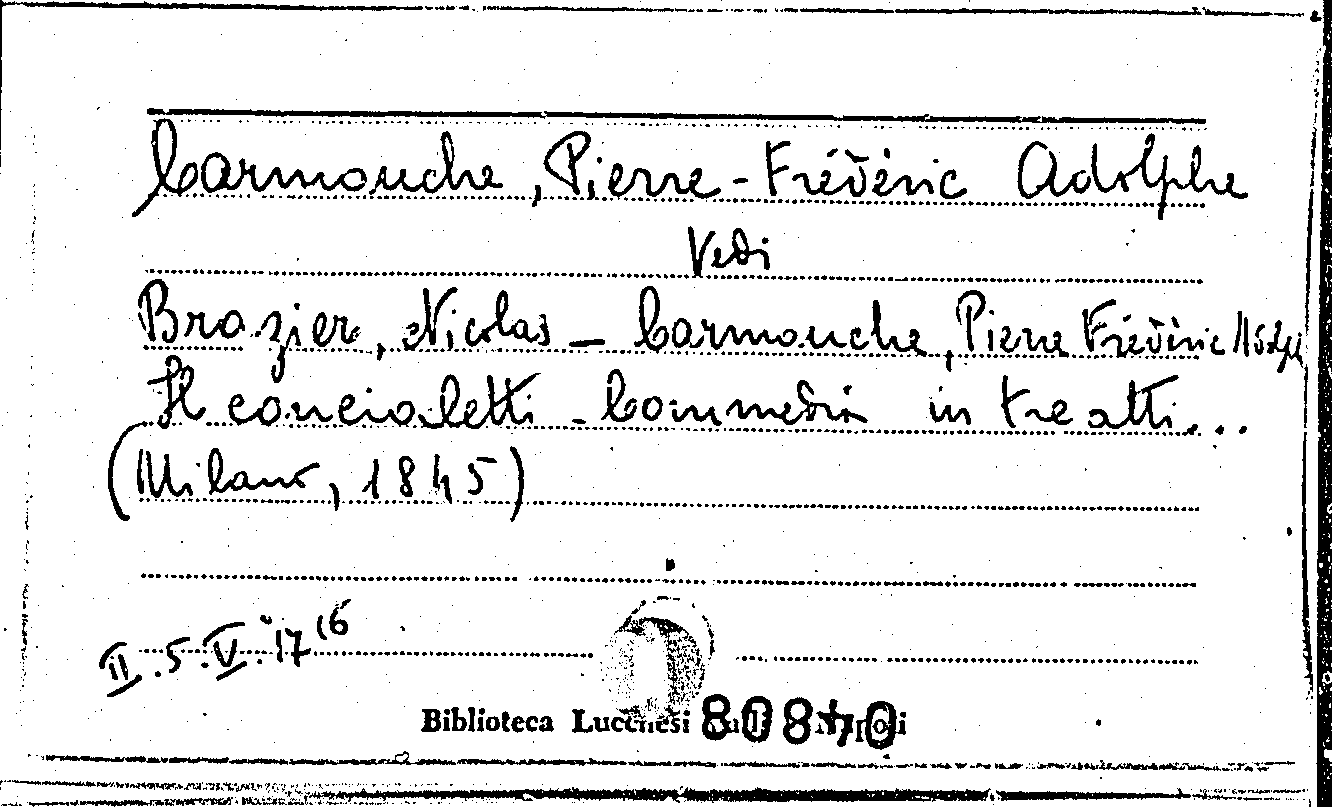 Carmouche, Pierre-Frédéric Adolphe
Vedi
Brazier, Nicolas - Carmouche, Pierre Frédéric Adolphe
Il conciatetti - Commedia in tre atti...
(Milano, 1845)
II.5.V.17(6
Biblioteca Lucchesi Palli Napoli
80840